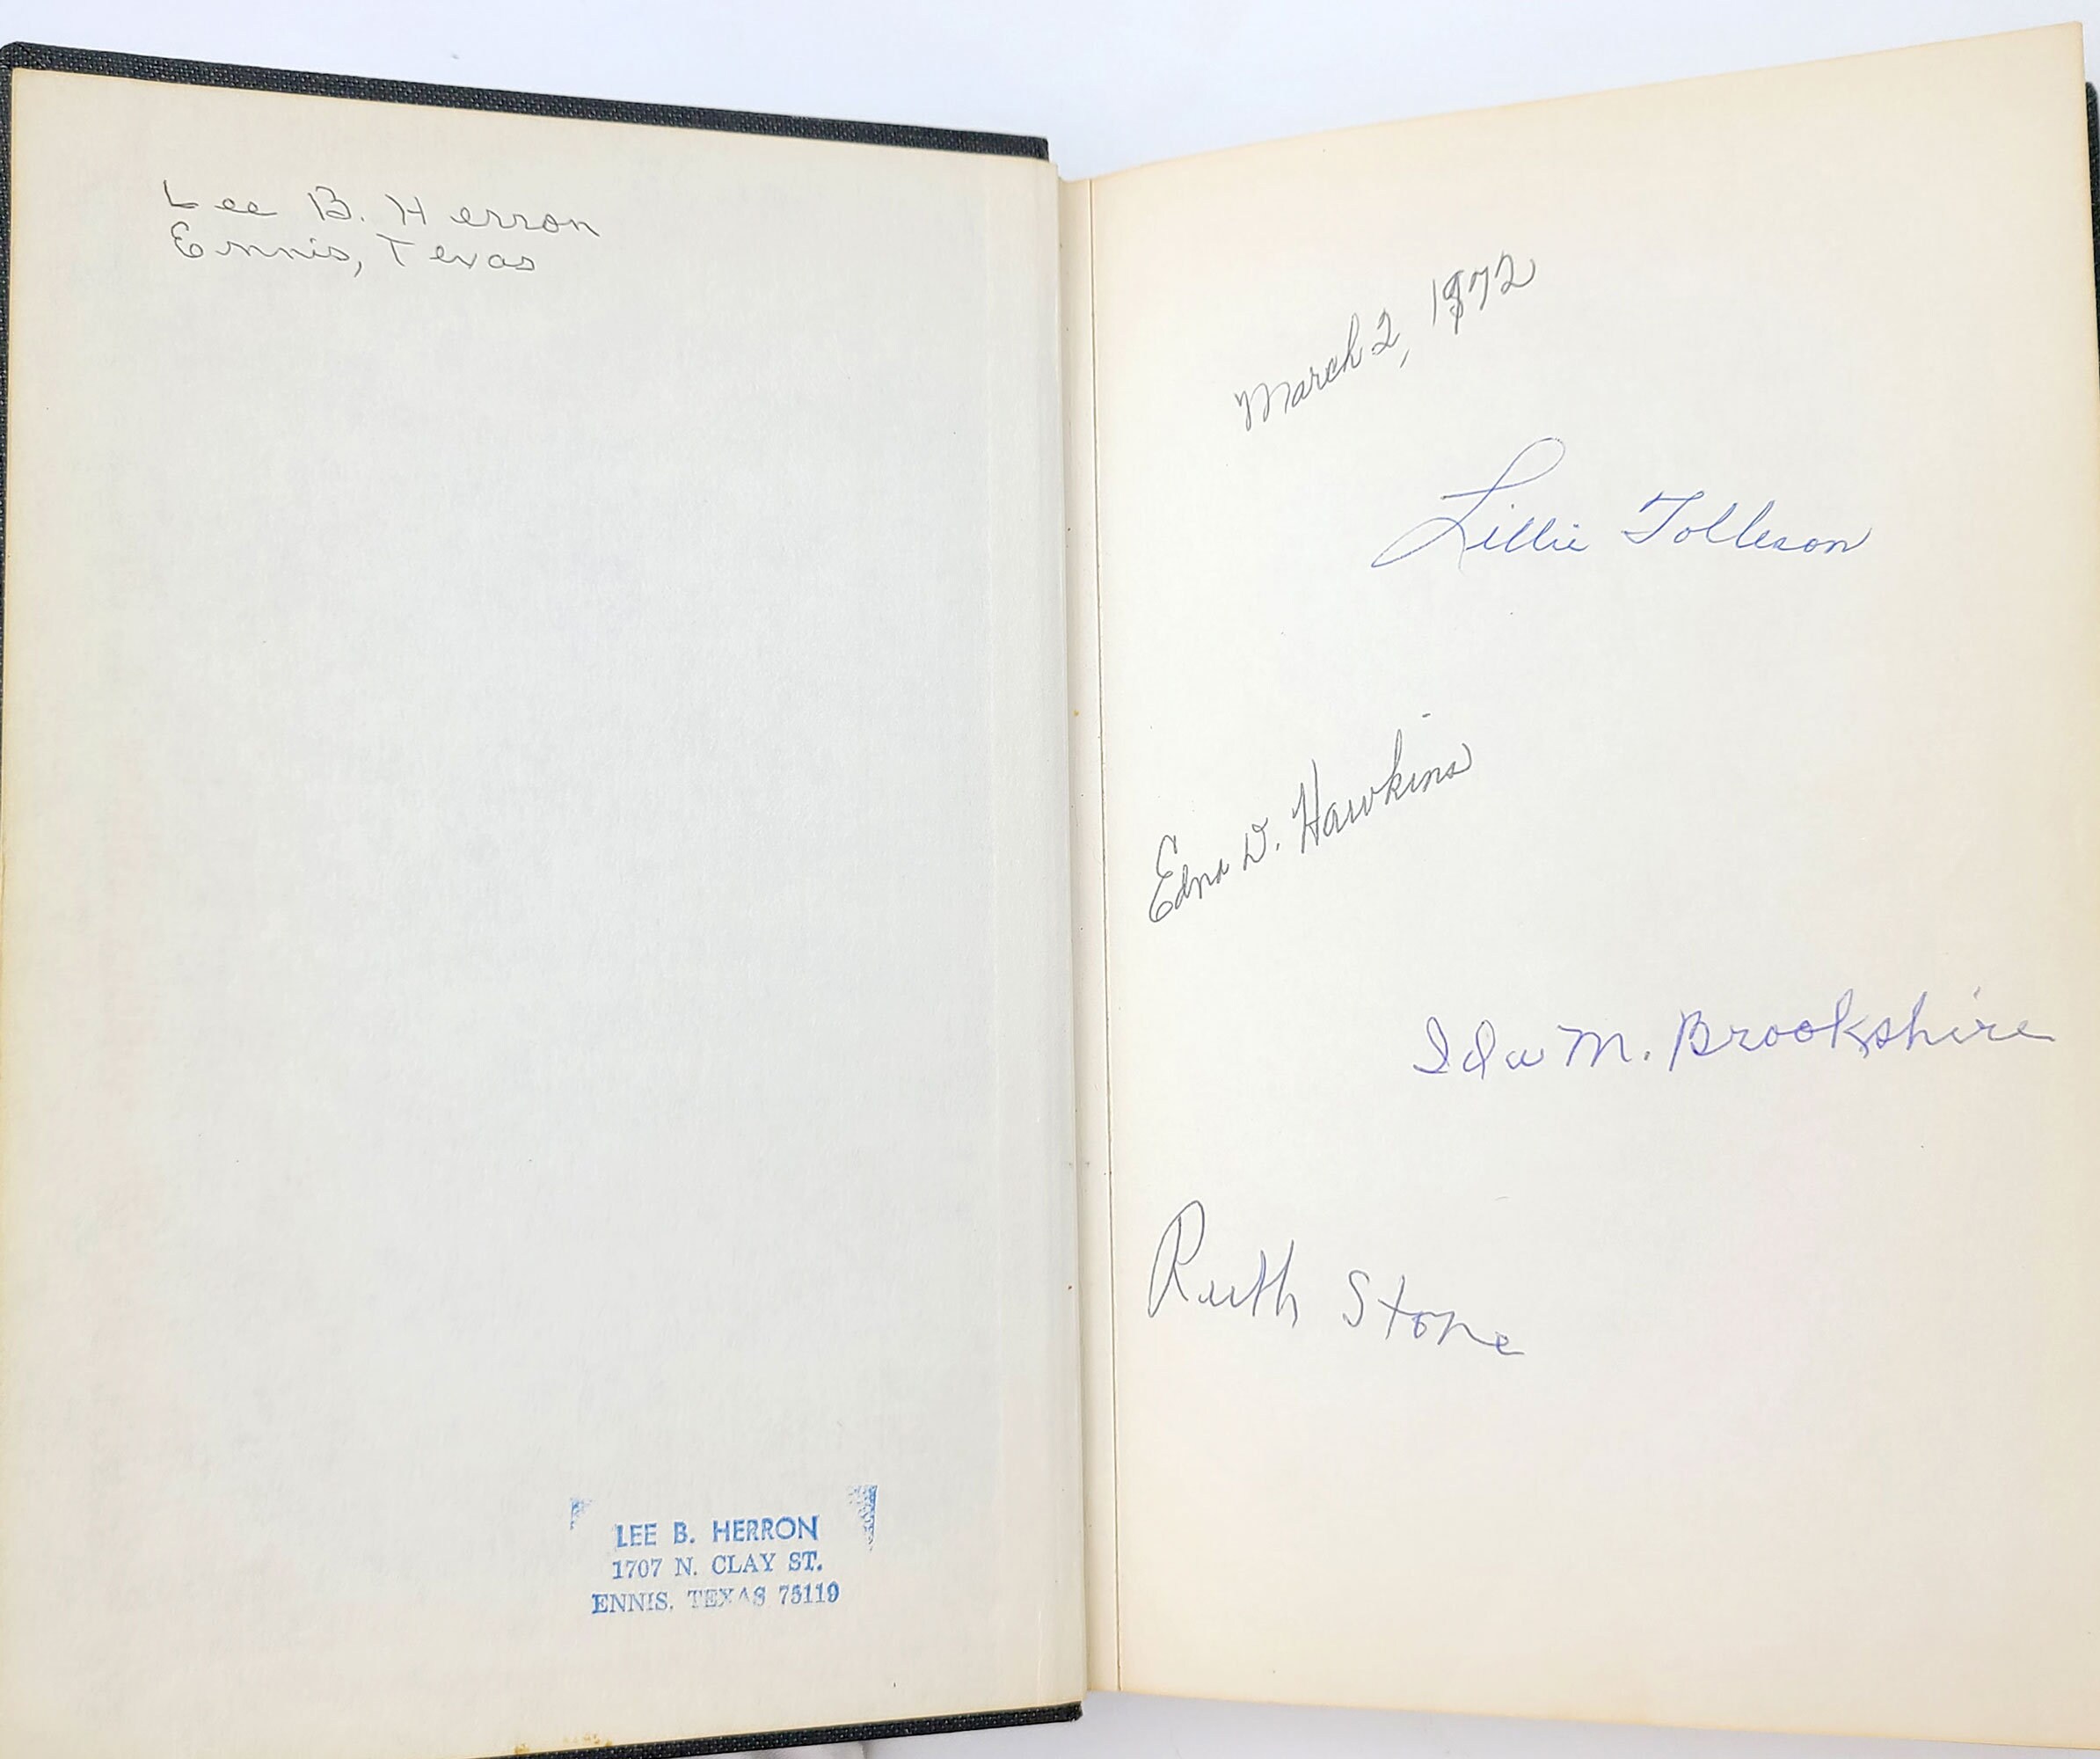 Lee B. Herron
Ennis, Texas
LEE B. HERRON
1707 N. CLAY ST.
ENNIS, TEXAS 75119
March 2, 1972
Lillie Tolleson
Edna W. Hawkins
Ida M. Brookshire
Ruth Stone